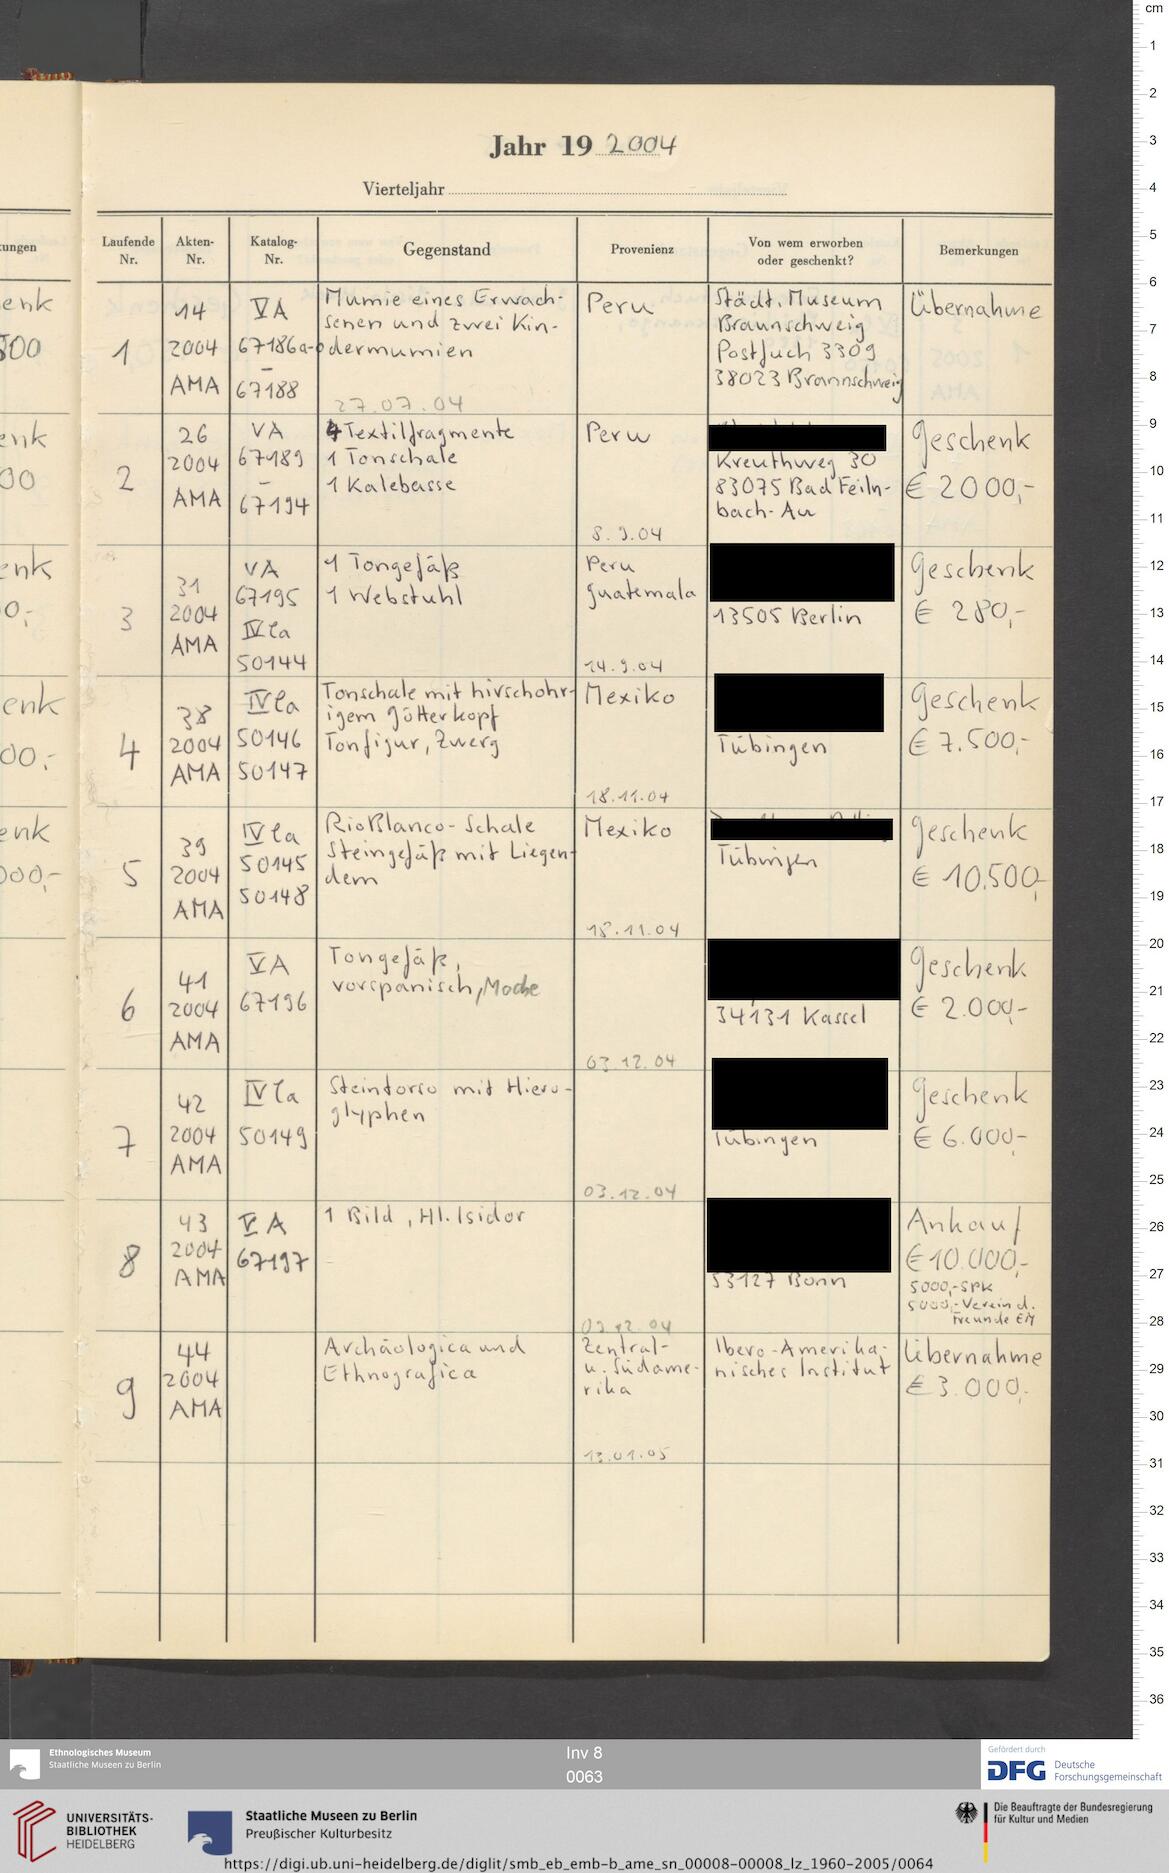 Jahr 19 2004
Vierteljahr
kungen
Laufende Nr.
Akten-Nr.
Katalog-Nr.
Gegenstand
Provenienz
Von wem erworben oder geschenkt?
Bemerkungen
enk
500
1
14
2004
AMA
VA
67186a-b
–
67188
Mumie eines Erwach-
senen und zwei Kin-
dermumien
27.07.04
Peru
Städt. Museum
Braunschweig
Postfach 3309
38023 Braunschweig
Übernahme
enk
00
2
26
2004
AMA
VA
67189
–
67194
4 Textilfragmente
1 Tonschale
1 Kalebasse
Peru
8.9.04
Kreuthweg 30
83075 Bad Feiln-
bach-Au
Geschenk
€ 2000,-
enk
0,-
3
31
2004
AMA
VA
67195
IVCa
50144
1 Tongefäß
1 Webstuhl
Peru
Guatemala
14.9.04
13505 Berlin
Geschenk
€ 280,-
enk
00,-
4
38
2004
AMA
IVCa
50146
50147
Tonschale mit hirschohr-
igem Götterkopf
Tonfigur, Zwerg
Mexiko
18.11.04
Tübingen
Geschenk
€ 7.500,-
enk
000,-
5
39
2004
AMA
IVCa
50145
50148
Rio Blanco-Schale
Steingefäß mit Liegen-
dem
Mexiko
18.11.04
Tübingen
Geschenk
€ 10.500,-
6
41
2004
AMA
VA
67196
Tongefäß,
vorspanisch, Moche
03.12.04
34131 Kassel
Geschenk
€ 2.000,-
7
42
2004
AMA
IVCa
50149
Steintorso mit Hiero-
glyphen
03.12.04
Tübingen
Geschenk
€ 6.000,-
8
43
2004
AMA
VA
67197
1 Bild, Hl. Isidor
09.12.04
53127 Bonn
Ankauf
€ 10.000,-
5000,- SPK
5000,- Verein d.
Freunde EM
9
44
2004
AMA
Archäologica und
Ethnografica
Zentral-
u. Südame-
rika
13.01.05
Ibero-Amerika-
nisches Institut
Übernahme
€ 3.000,-
cm
1
2
3
4
5
6
7
8
9
10
11
12
13
14
15
16
17
18
19
20
21
22
23
24
25
26
27
28
29
30
31
32
33
34
35
36
Ethnologisches Museum
Staatliche Museen zu Berlin
Inv 8
0063
Gefördert durch
DFG Deutsche
Forschungsgemeinschaft
UNIVERSITÄTS-
BIBLIOTHEK
HEIDELBERG
Staatliche Museen zu Berlin
Preußischer Kulturbesitz
Die Beauftragte der Bundesregierung
für Kultur und Medien
https://digi.ub.uni-heidelberg.de/diglit/smb_eb_emb-b_ame_sn_00008-00008_lz_1960-2005/0064